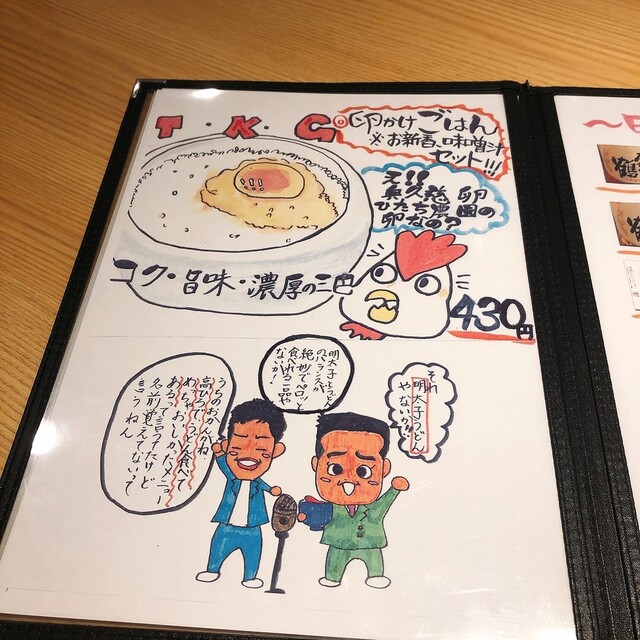 T・K・G
卵かけごはん
※お新香、味噌汁
セット!!!
え!!
奥久慈卵
ひたち農園の
卵なの?
コク・旨味・濃厚の三巴
430円
それ
明太子うどん
やないか!!
明太子とうどん
のバランスが
絶妙でペロッと
食べれる一品や
ないか!
うちのおかんがね
高ひでうどん食べて
めっちゃ
おいしかったメニュー
あるって言ってたけど
名前覚えてないって
言うねん